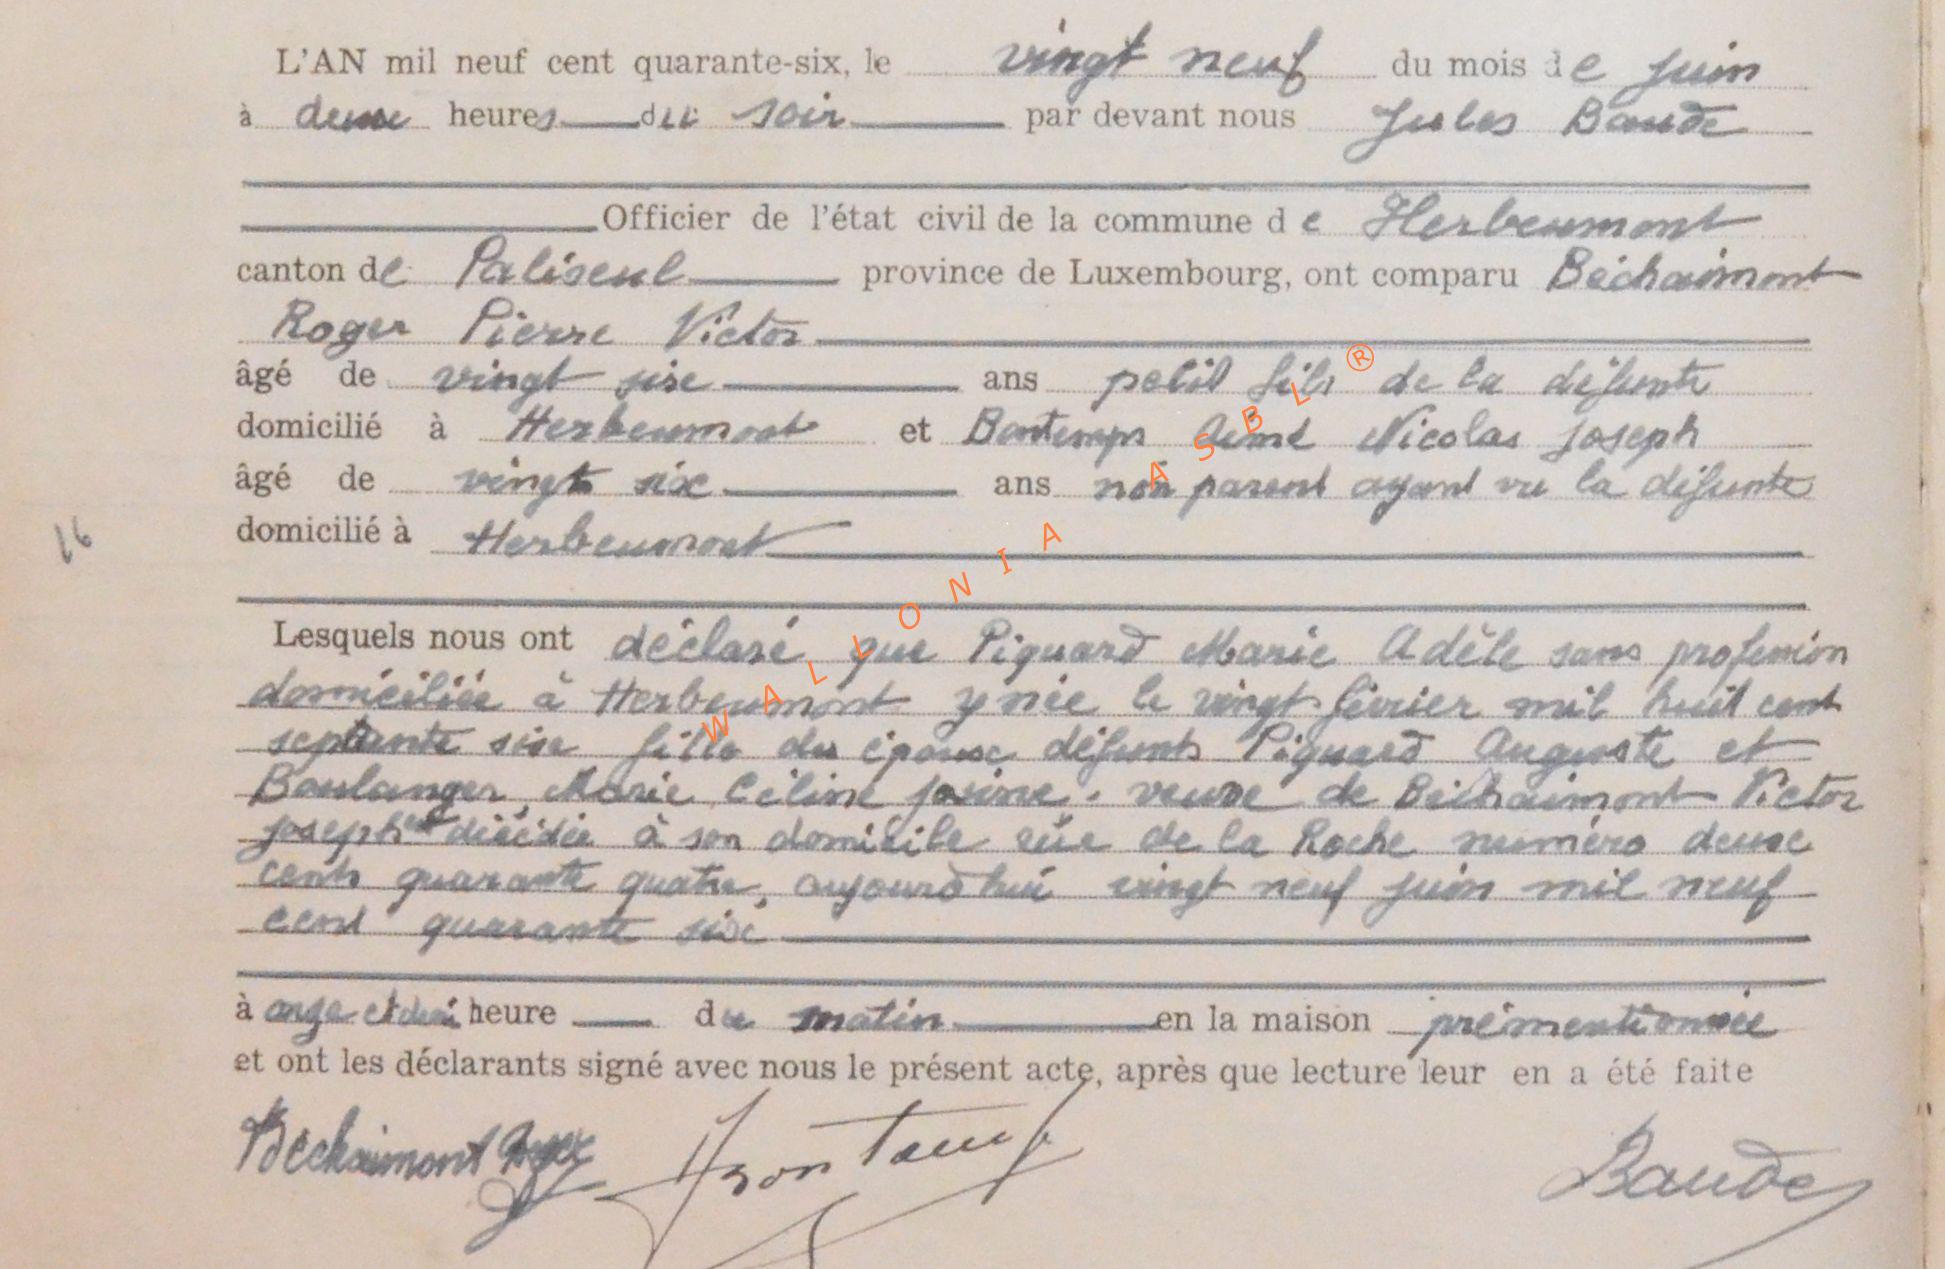 L'AN mil neuf cent quarante-six, le vingt neuf du mois de juin
à deux heures du soir par devant nous Jules Baude
Officier de l'état civil de la commune de Herbeumont
canton de Paliseul province de Luxembourg, ont comparu Béchaimont
Roger Pierre Victor
âgé de vingt six ans petit fils de la défunte
domicilié à Herbeumont et Bontemps Aimé Nicolas Joseph
âgé de vingt six ans non parent ayant vu la défunte
16
domicilié à Herbeumont
Lesquels nous ont déclaré que Piquard Marie Adèle sans profession
domiciliée à Herbeumont y née le vingt février mil huit cent
septante six fille des époux défunts Piquard Auguste et
Boulanger Marie Céline veuve de Béchaimont Victor
Joseph est décédée à son domicile rue de la Roche numéro deux
cents quarante quatre, aujourd'hui vingt neuf juin mil neuf
cent quarante six
à onze et demi heure du matin en la maison prémentionnée
et ont les déclarants signé avec nous le présent acte, après que lecture leur en a été faite
Béchaimont Roger Bontemps Baude
WALLONIA ASBL ®